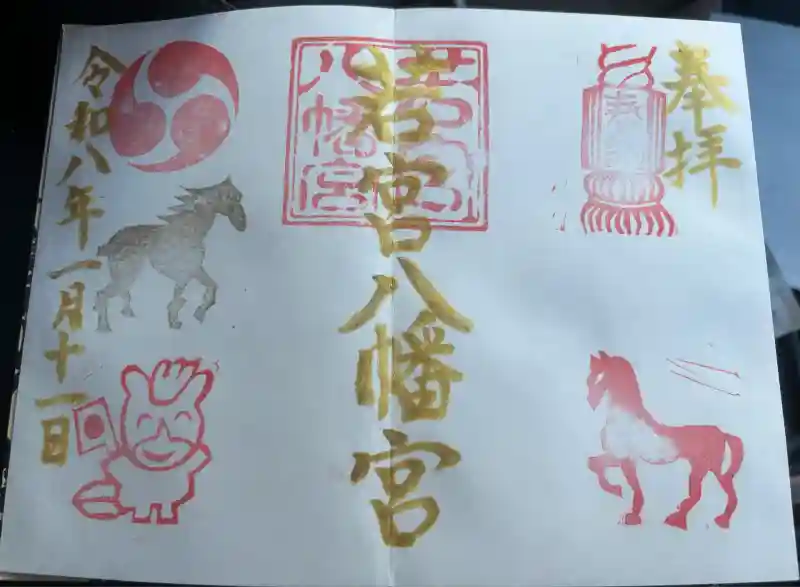 奉拝
若宮八幡宮
若宮
八幡宮
令和八年一月十一日